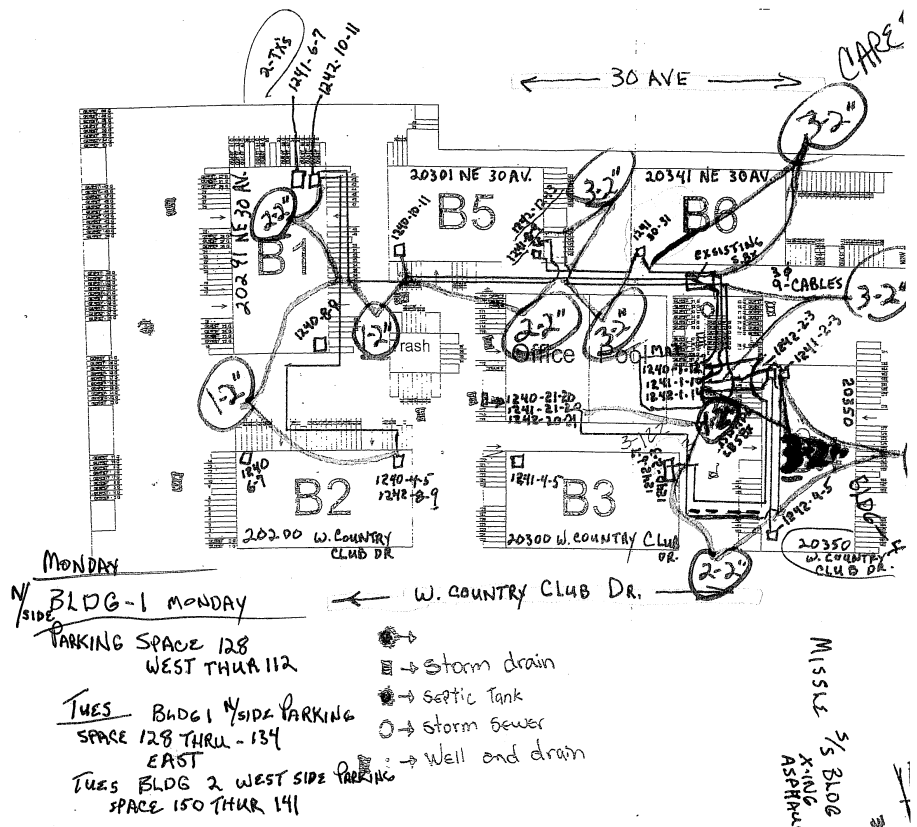 2-TX'S
1241-6-7
1242-10-11
30 AVE
CARE
3-2"
20291 NE 30 AV.
2-2"
B1
1240-8-9
1240-10-11
20301 NE 30 AV.
B5
3-2"
1242-12-13
20341 NE 30 AV.
B6
1241
30-31
EXSISTING
S.BX
3Ø
9-CABLES
3-2"
1-2"
Trash
2-2"
3-2"
Office
Pool
1240-1-12
1241-1-10
1242-1-14
1242-2-3
1241-2-3
1-2"
1240-21-20
1241-21-20
1242-20-21
20350
BLDG-4
1240
6-7
1240-4-5
1242-8-9
B2
20200 W. COUNTRY
CLUB DR
1241-4-5
B3
20300 W. COUNTRY CLUB
DR.
1242-4-5
20350
W. COUNTRY
CLUB DR.
2-2"
W. COUNTRY CLUB DR.
MONDAY
N/SIDE
BLDG-1 MONDAY
PARKING SPACE 128
WEST THUR 112
TUES BLDG 1 N/SIDE PARKING
SPACE 128 THRU - 134
EAST
TUES BLDG 2 WEST SIDE PARKING
SPACE 150 THUR 141
Storm drain
SEPTIC TANK
Storm Sewer
Well and drain
MISSLE S/S BLDG
X-ING
ASPHAL